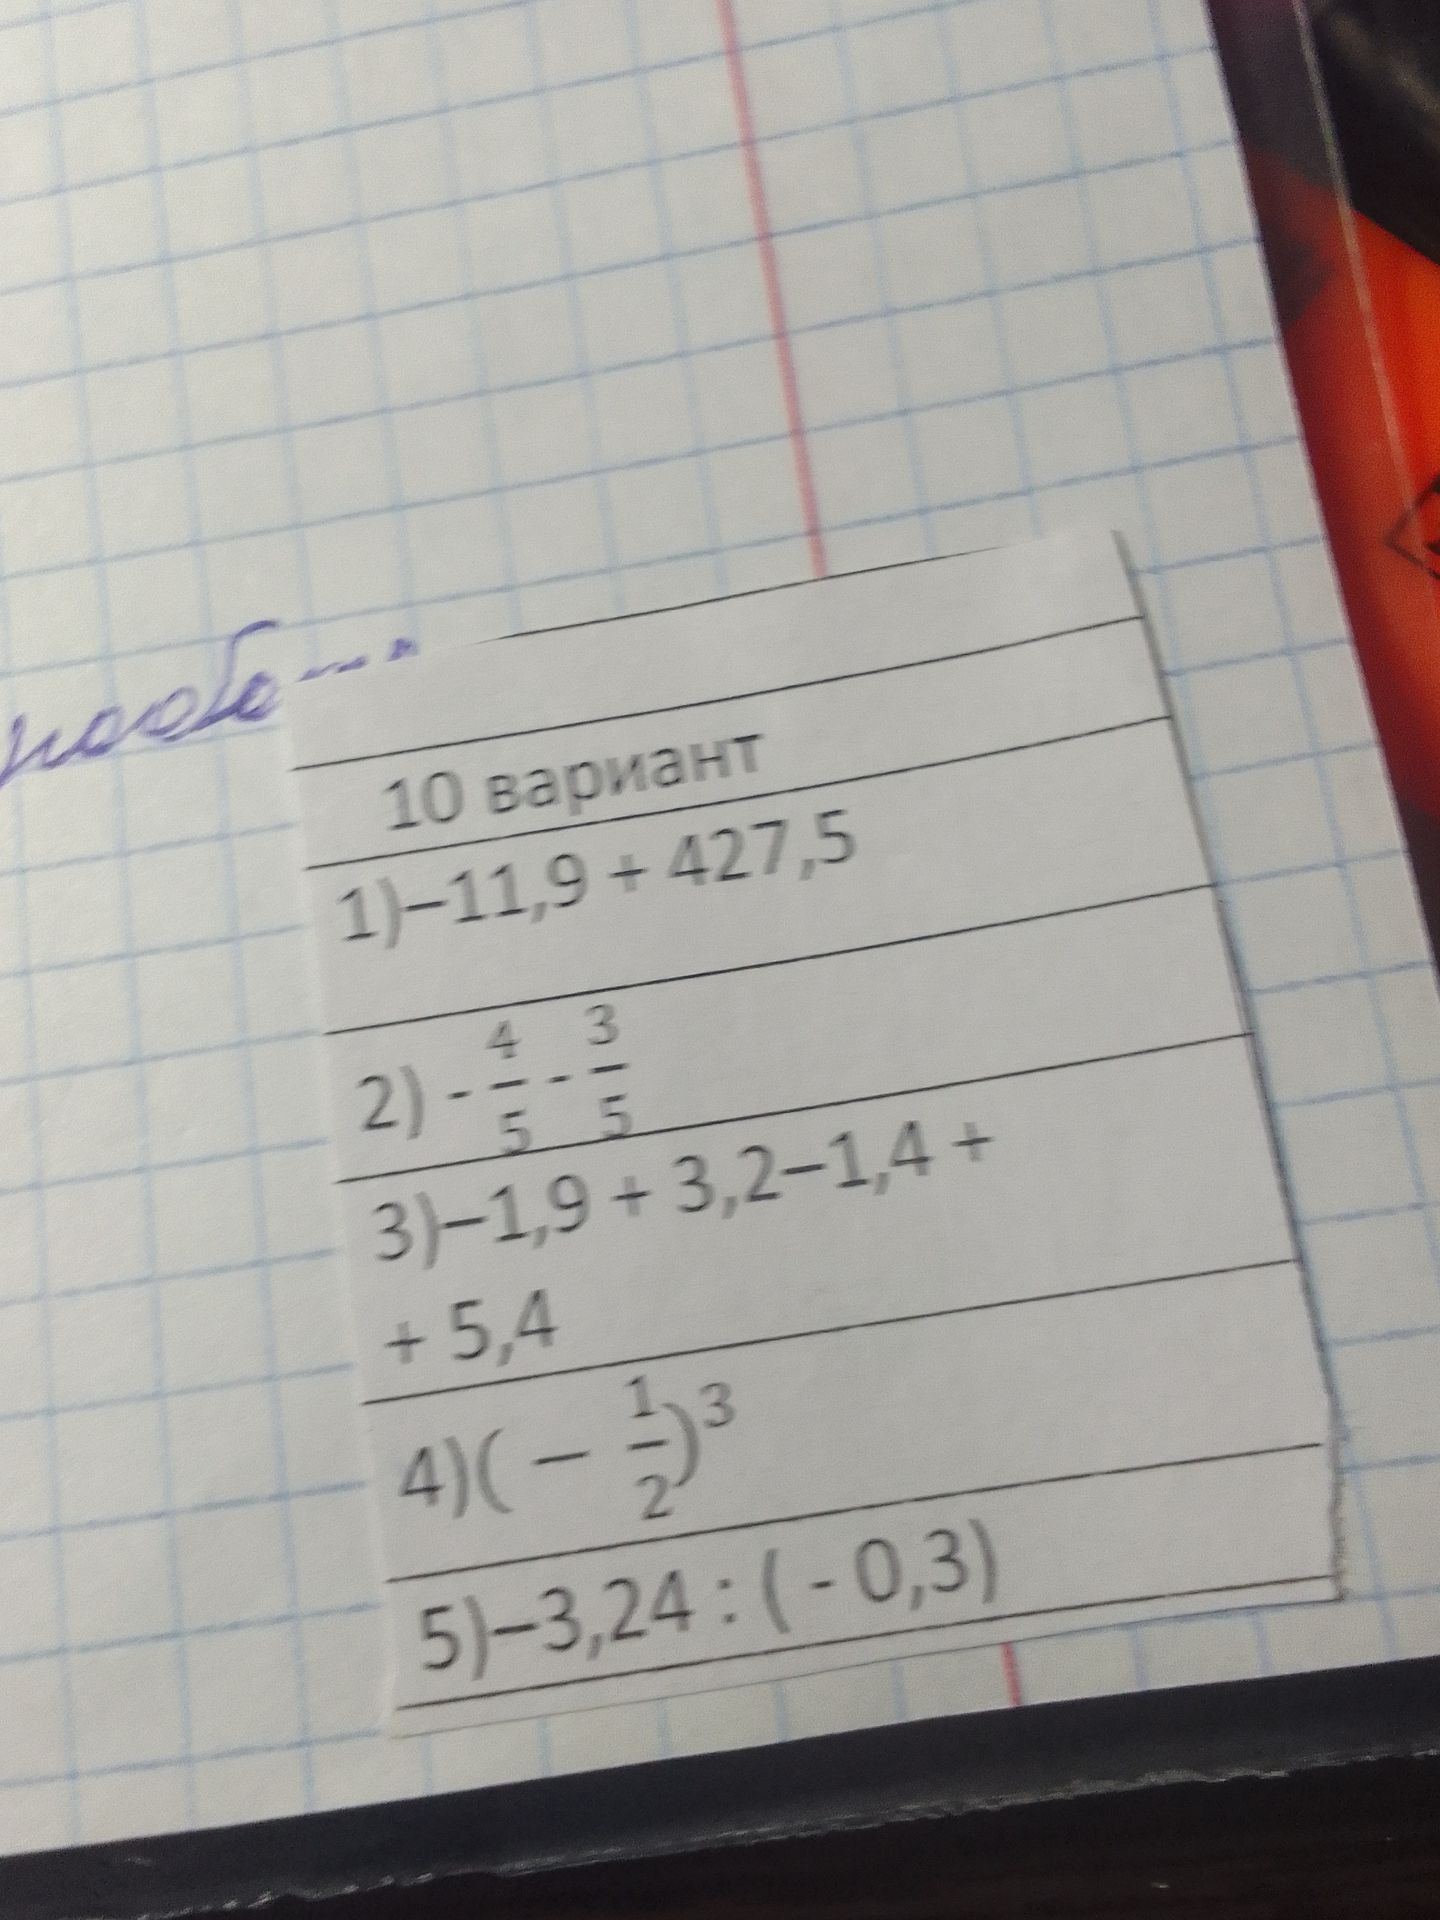 10 вариант
1)–11,9 + 427,5
2) - 4/5 - 3/5
3)–1,9 + 3,2–1,4 +
+ 5,4
4)( – 1/2)³
5)–3,24 : ( - 0,3)